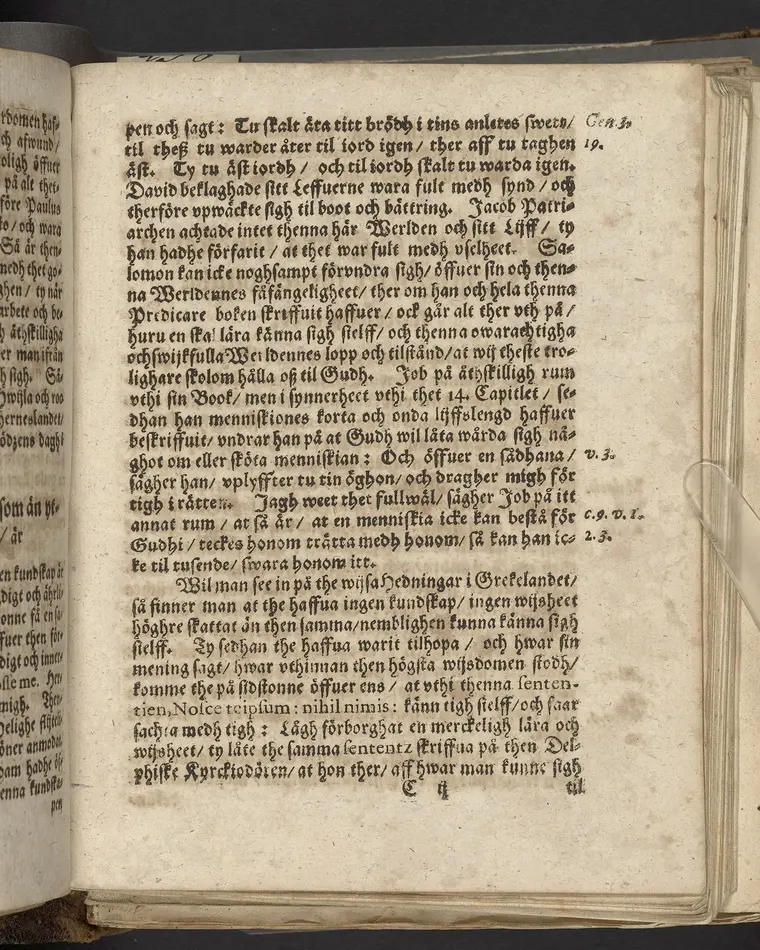 pen och sagt: Tu skalt äta titt brödh i tins anletes swett/ Gen. 3.
til theß tu warder åter til iord igen/ ther aff tu taghen 19.
äst. Ty tu äst iordh/ och til iordh skalt tu warda igen.
David beklaghade sitt Leffuerne wara fult medh synd/ och
therföre vpwäckte sigh til boot och bättring. Jacob Patri-
archen achtade intet thenna här Werlden och sitt Lijff/ ty
han hadhe förfarit/ at thet war fult medh vselheet. Sa-
lomon kan icke noghsampt förvndra sigh/ öffuer sin och then-
na Werldennes fåfängeligheet/ ther om han och hela thenna
Predicare boken skriffuit haffuer/ ock går alt ther vth på/
huru en skal lära känna sigh sielff/ och thenna owarachtigha
och swijkfulla Werldennes lopp och tilstånd/ at wij theste tro-
lighare skolom hålla oß til Gudh. Job på åthskilligh rum
vthi sin Book/ men i synnerheet vthi thet 14. Capitlet/ se-
dhan han menniskiones korta och onda lijffslengd haffuer
beskriffuit/ vndrar han på at Gudh wil låta wårda sigh nå-
ghot om eller sköta menniskian: Och öffuer en sådhana/ v. 3.
sägher han/ vplyffter tu tin öghon/ och dragher migh för
tigh i rätten. Jagh weet thet fullwäl/ sägher Job på itt
annat rum/ at så är/ at en menniskia icke kan bestå för c. 9. v. 1.
Gudhi/ teckes honom trätta medh honom/ så kan han ic- 2. 3.
ke til tusende/ swara honom itt.
Wil man see in på the wijsa Hedningar i Grekelandet/
så finner man at the haffua ingen kundskap/ ingen wijsheet
höghre skattat än then samma/ nemblighen kunna känna sigh
sielff. Ty sedhan the haffua warit tilhopa/ och hwar sin
mening sagt/ hwar vthinnan then högsta wijsdomen stodh/
komme the på sidstonne öffuer ens/ at vthi thenna senten-
tien, Nosce teipsum: nihil nimis: känn tigh sielff/ och faar
sachta medh tigh: Lågh förborghat en merckeligh lära och
wijsheet/ ty läte the samma sententz skriffua på then Del-
phiske Kyrckiodören/ at hon ther/ aff hwar man kunne sigh
C ij til